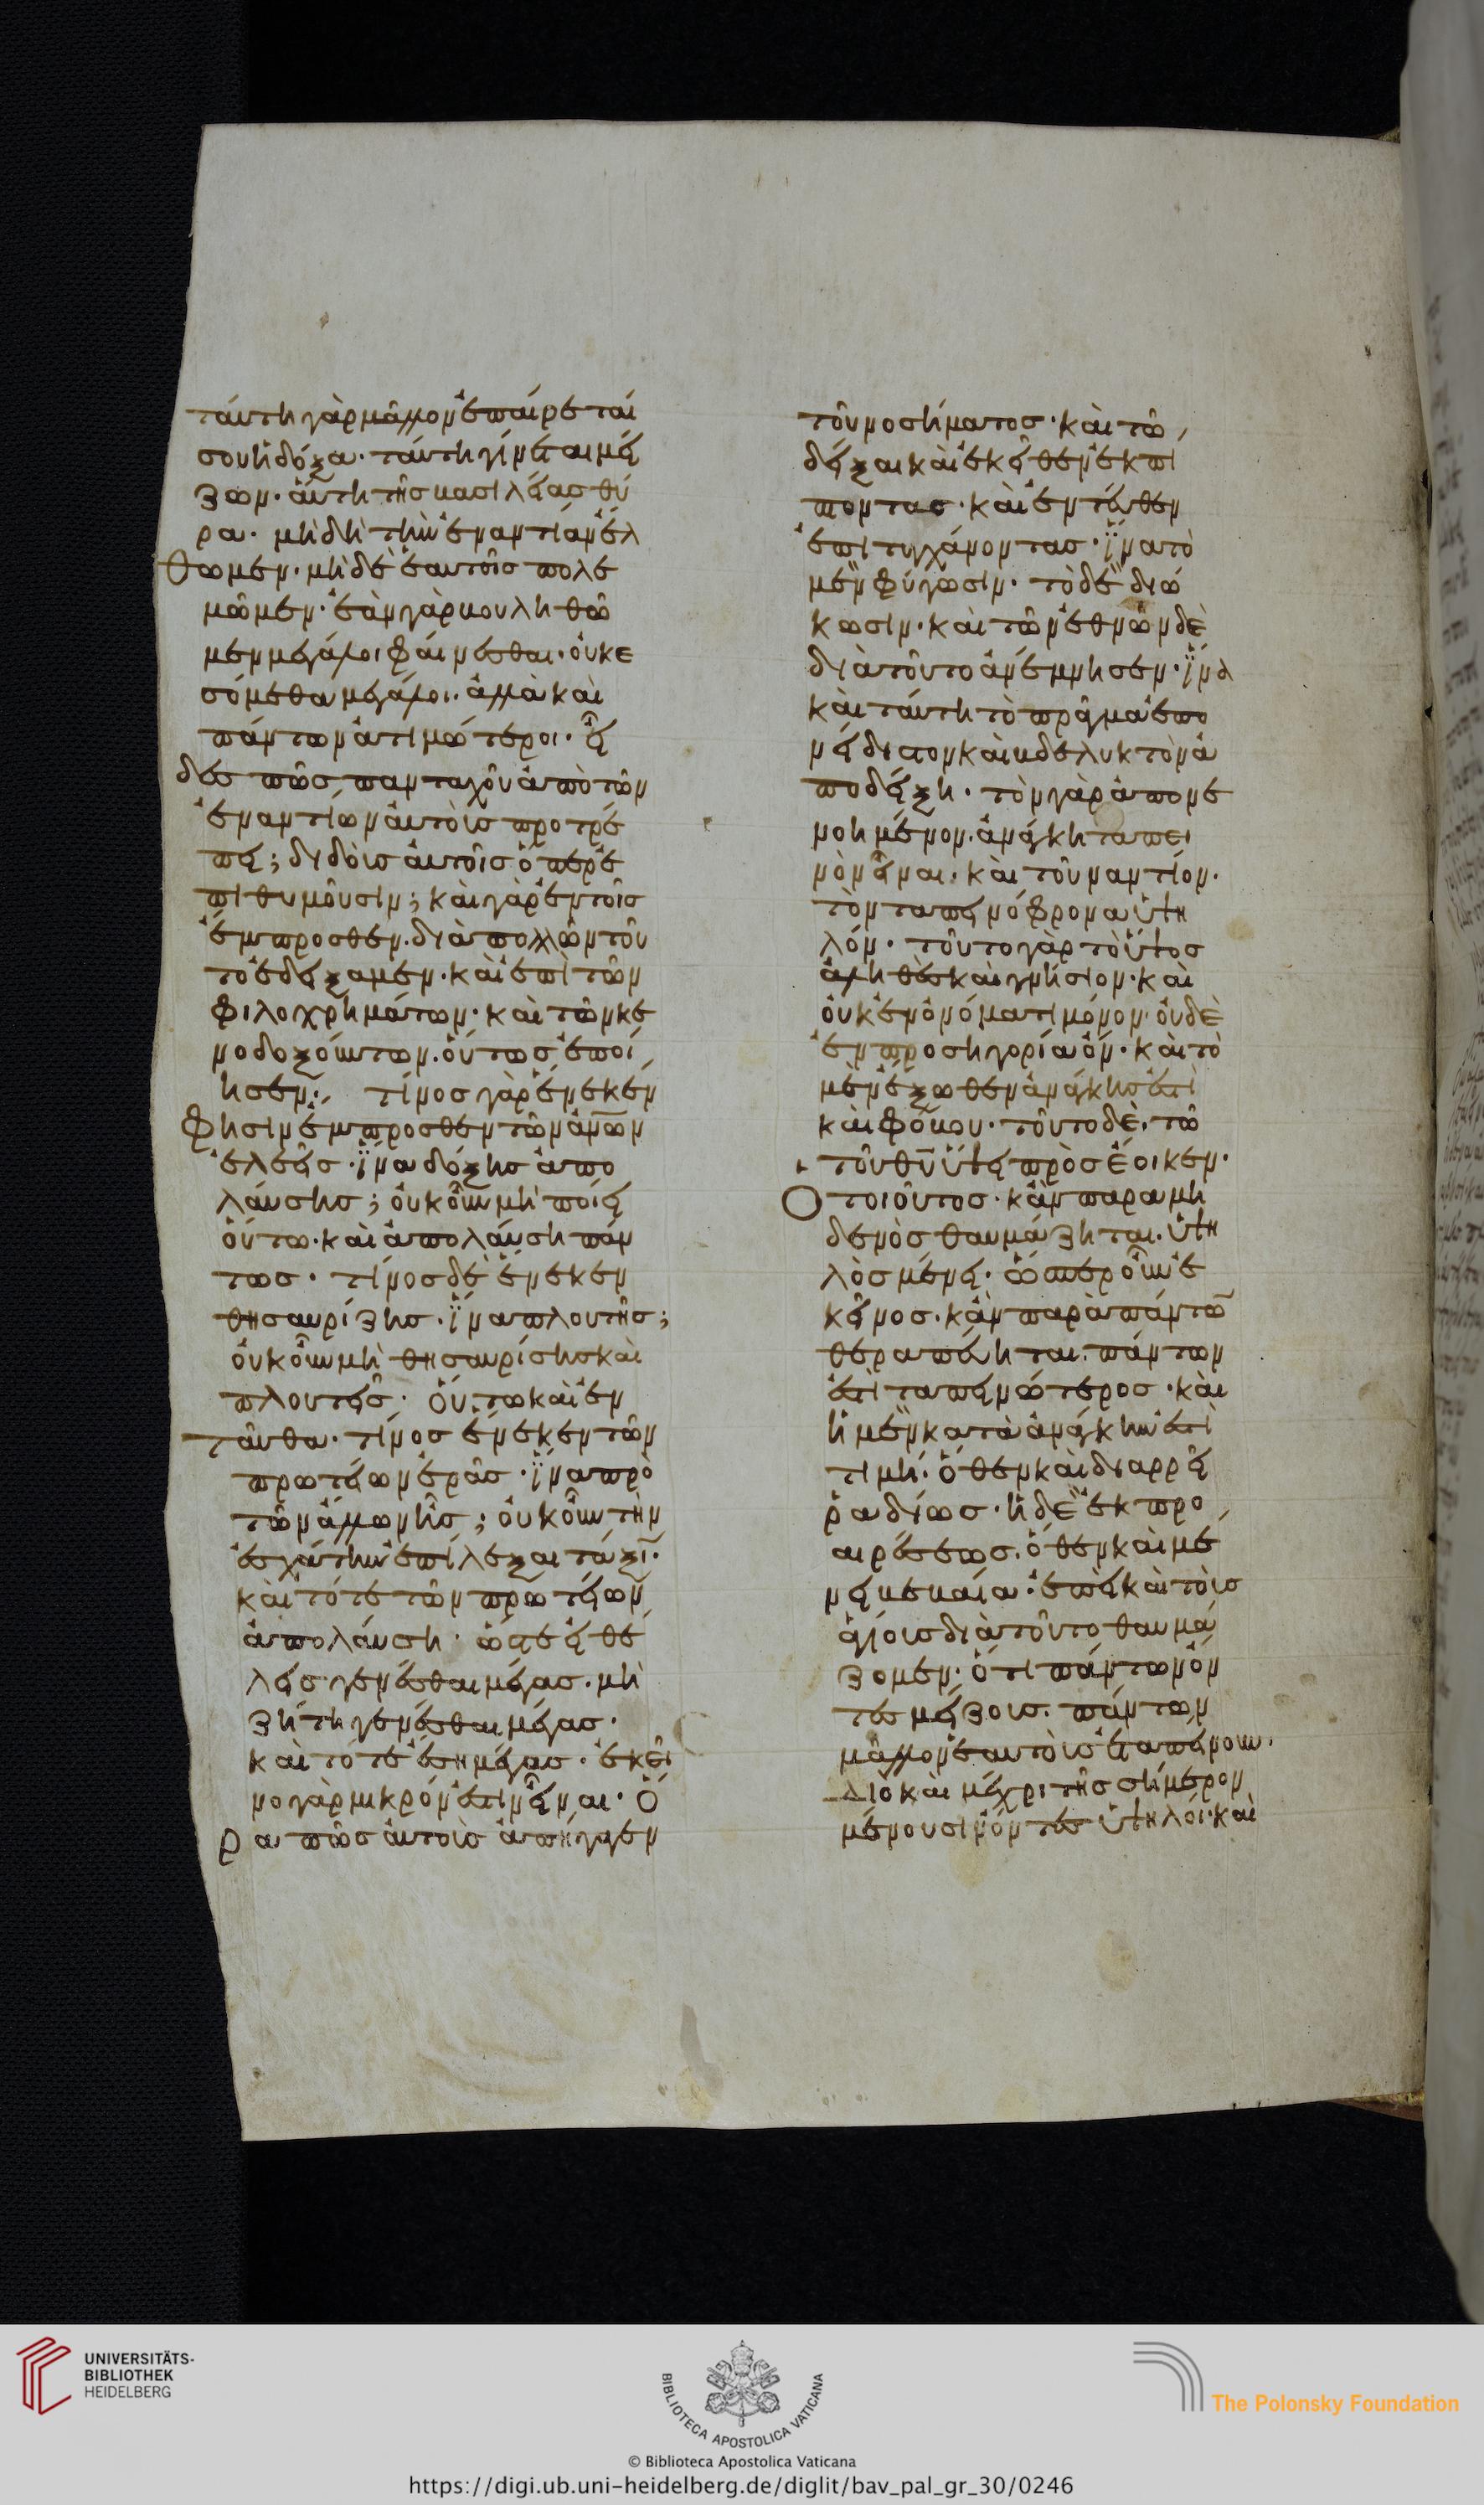 ταύτη γὰρ μᾶλλον ἐπαίρεται
σου ἡ δόξα· ταύτη γίνεται μεί
ζων· αὕτη τῆς βασιλείας θύ
ρα· μὴ δὴ τὴν ἐναντίαν ἔλ
θωμεν· μὴ δὲ ἑαυτοῖς πολε
μῶμεν· ἐὰν γὰρ βουληθῶ
μεν μεγάλοι φαίνεσθαι· οὐκ ἐ
σόμεθα μεγάλοι· ἀλλὰ καὶ
πάντων ἀτιμώτεροι· εἶ
δες πῶς πανταχοῦ ἀπὸ τῶν
ἐναντίων αὐτοὺς προτρέ
πει; διδοὺς αὐτοῖς ὅπερ ἐ
πιθυμοῦσιν; καὶ γὰρ ἐν τοῖς
ἔμπροσθεν· διὰ πολλῶν τοῦ
το ἐδείξαμεν· καὶ ἐπὶ τῶν
φιλοχρημάτων· καὶ τῶν κε
νοδοξούντων· οὕτως ἐποί
ησεν· τίνος γὰρ ἕνεκεν
φησὶν ἔμπροσθεν τῶν ἀνων
ἐλεεῖς· ἵνα δόξης ἀπο
λαύσης; οὐκοῦν μὴ ποίει
οὕτω· καὶ ἀπολαύση πάν
τως· τίνος δὲ ἕνεκεν
θησαυρίζης· ἵνα πλουτῆς;
οὐκοῦν μὴ θησαυρίσης καὶ
πλουτεῖς· οὕτω καὶ ἐν
ταῦθα· τίνος ἕνεκεν τῶν
πρωτείων ἐρᾶς· ἵνα πρὸ
τῶν ἄλλων ἦς; οὐκοῦν τὴν
ἐσχάτην ἐπίλεξαι τάξι·
καὶ τότε τῶν πρωτείων
ἀπολαύση· ὥστε εἰ θέ
λεις γενέσθαι μέγας· μὴ
ζήτη γενέσθαι μέγας·
καὶ τότε ἔση μέγας· ἐκεῖ
νο γὰρ μικρόν ἐστιν εἶναι· ὅ
ρα πῶς αὐτοὺς ἀπήγαγεν
τοῦ νοσήματος· καὶ τῶ
δεῖξαι καὶ ἐκεῖθεν ἐκπί
πτοντας· καὶ ἐντεῦθεν
ἐπιτυγχάνοντας· ἵνα τὸ
μὲν φύγωσιν· τὸ δὲ διώ
κωσιν· καὶ τῶν ἐθνῶν δὲ
διὰ τοῦτο ἀνέμνησεν· ἵνα
καὶ ταύτη τὸ πρᾶγμα ἐπο
νείδιστον καὶ βδελυκτὸν ἀ
ποδείξη· τὸν γὰρ ἀπονε
νοημένον· ἀνάγκη ταπει
νὸν εἶναι· καὶ τοὐναντίον·
τὸν ταπεινόφρονα ὑψη
λόν· τοῦτο γὰρ τὸ ὕψος
ἀληθὲς καὶ γνήσιον· καὶ
οὐκ ἐν ὀνόματι μόνον· οὐδὲ
ἐν προσηγορία ὄν· καὶ τὸ
μὲν ἔξωθεν ἀνάγκης ἐστὶ
καὶ φόβου· τοῦτο δὲ· τῶ
τοῦ θῦ ὕψει προσέοικεν·
Ὁ τοιοῦτος· κἂν παρα μη
δενὸς θαυμάζηται· ὑψη
λὸς μένει· ὥσπερ οὖν ἐ
κεῖνος· κἂν παρὰ πάντω
θεραπεύηται· πάντων
ἐστὶ ταπεινώτερος· καὶ
ἡ μὲν κατὰ ἀνάγκην ἐστὶ
τιμή· ὅθεν καὶ διαρρεῖ
ῥαδίως· ἡ δὲ ἐκ προ
αιρέσεως· ὅθεν καὶ μέ
νει βεβαία· ἐπεὶ καὶ τοὺς
ἁγίους διὰ τοῦτο θαυμά
ζομεν· ὅτι πάντων ὄν
τες μείζους· πάντων
μᾶλλον ἑαυτοὺς ἐταπείνουν·
Διὸ καὶ μέχρι τῆς σήμερον
μένουσιν ὄντες ὑψηλοί· καὶ
UNIVERSITÄTS-
BIBLIOTHEK
HEIDELBERG
BIBLIOTECA APOSTOLICA VATICANA
The Polonsky Foundation
© Biblioteca Apostolica Vaticana
https://digi.ub.uni-heidelberg.de/diglit/bav_pal_gr_30/0246